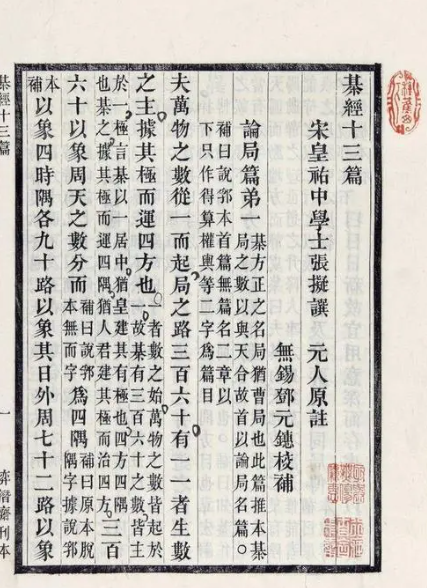 棊經十三篇
宋皇祐中學士張擬譔 元人原註
無錫鄧元鏸校補
論局篇弟一 棊方正之名局猶曹局也此篇推本棊
局之數以與天合故首以諭局名篇
補曰說郛本首篇無篇名二章以
下只作得算權輿等二字爲篇目
夫萬物之數從一而起局之路三百六十有一一者生數
之主據其極而運四方也 一者數之始萬物之數皆起於
一故棊有三百六十之數皆主
於一極言棊以一居中猶皇建其有極也四方四隅
也棊之據其極而運四隅猶人君建其極而治四方 三百
六十以象周天之數分而 補曰說郛
本無而字 爲四隅 補曰原本脫
隅字據說郛
本
補 以象四時隅各九十路以象其日外周七十二路以象
棊經十三篇
一
弈潛齋刊本